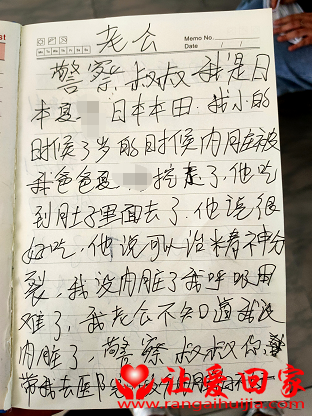 Memo No.
Date
老公
警察叔叔我是日
本夏 日本本田.我小的
时候了岁的时候内脏被
我爸爸夏 挖走了,他吃
到肚子里面去了.他说很
好吃,他说可以治精神分
裂,我没内脏了我呼吸困
难了,我老公不知道我没
内脏了,警察叔叔你
带我去医院
让爱回家
www.rangaihuijia.com